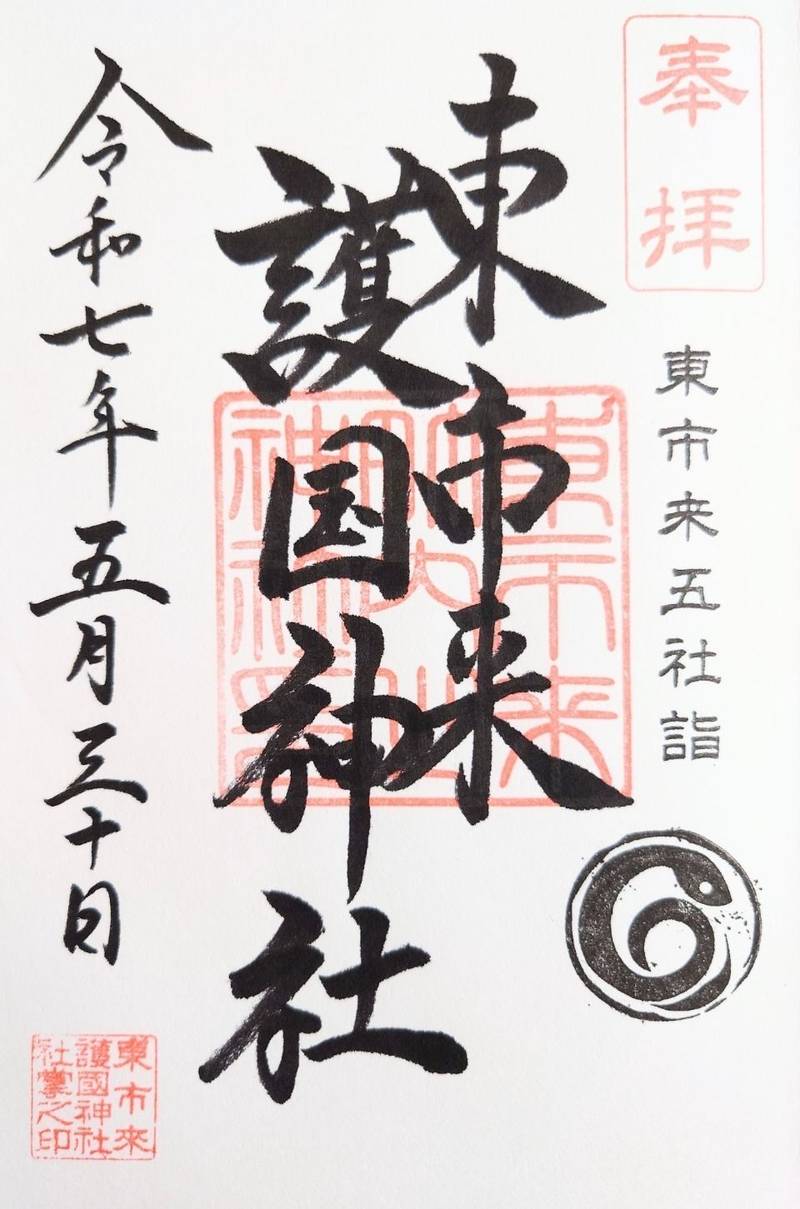 奉拝
東市来五社詣
東市来
護国神社
令和七年五月三十日
東市来
護國神社
社掌之印